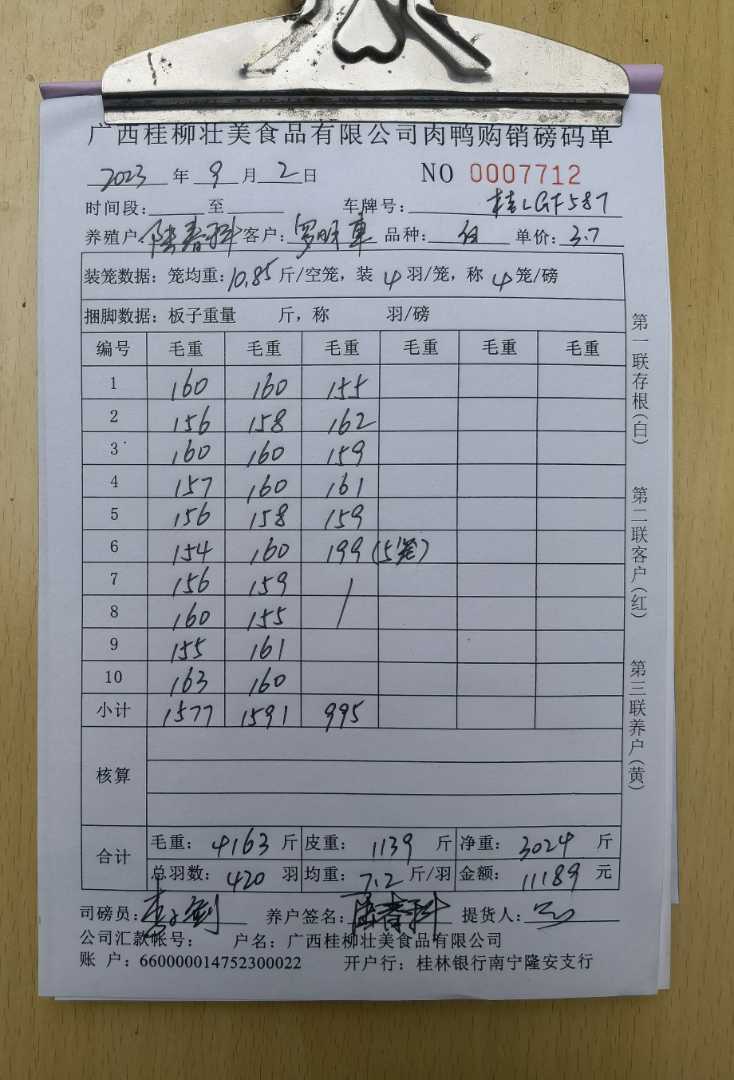 广西桂柳壮美食品有限公司肉鸭购销磅码单
2023 年 9 月 2 日 NO 0007712
时间段: 至 车牌号: 桂LGF587
养殖户 陆春科 客户: 罗 品种: 白 单价: 3.7
装笼数据: 笼均重: 10.85 斤/空笼, 装 4 羽/笼, 称 4 笼/磅
捆脚数据: 板子重量 斤, 称 羽/磅
编号 毛重 毛重 毛重 毛重 毛重 毛重
1 160 160 155
2 156 158 162
3 160 160 159
4 157 160 161
5 156 158 159
6 154 160 199 (5笼)
7 156 159
8 160 155
9 155 161
10 163 160
小计 1577 1591 995
核算
合计 毛重: 4163 斤 皮重: 1139 斤 净重: 3024 斤
总羽数: 420 羽 均重: 7.2 斤/羽 金额: 11189 元
司磅员: 养户签名: 陆春科 提货人:
公司汇款帐号: 户名: 广西桂柳壮美食品有限公司
账 户: 660000014752300022 开户行: 桂林银行南宁隆安支行
第一联存根(白) 第二联客户(红) 第三联养户(黄)